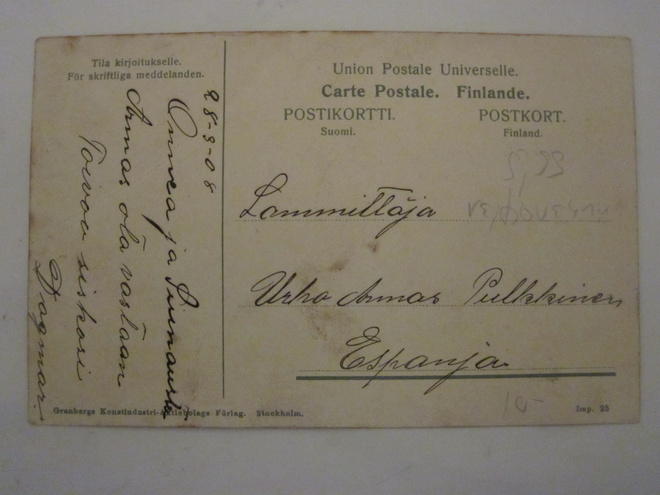 Tila kirjoitukselle.
För skriftliga meddelanden.
28-3-08
Onnea ja Siunausta
Armas ota vastaan
Toivoo siskosi
Dagmar.
Union Postale Universelle.
Carte Postale. Finlande.
POSTIKORTTI. POSTKORT.
Suomi. Finland.
Lammittäjä
Urho Armas Pulkkinen
Espanja
10-
Granbergs Konstindustri-Aktiebolags Förlag. Stockholm.
Imp. 25